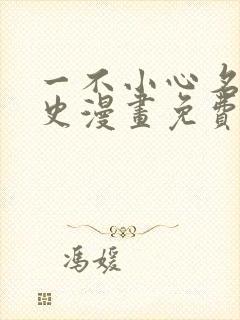 一不小心名
史漫畫免費
馮媛